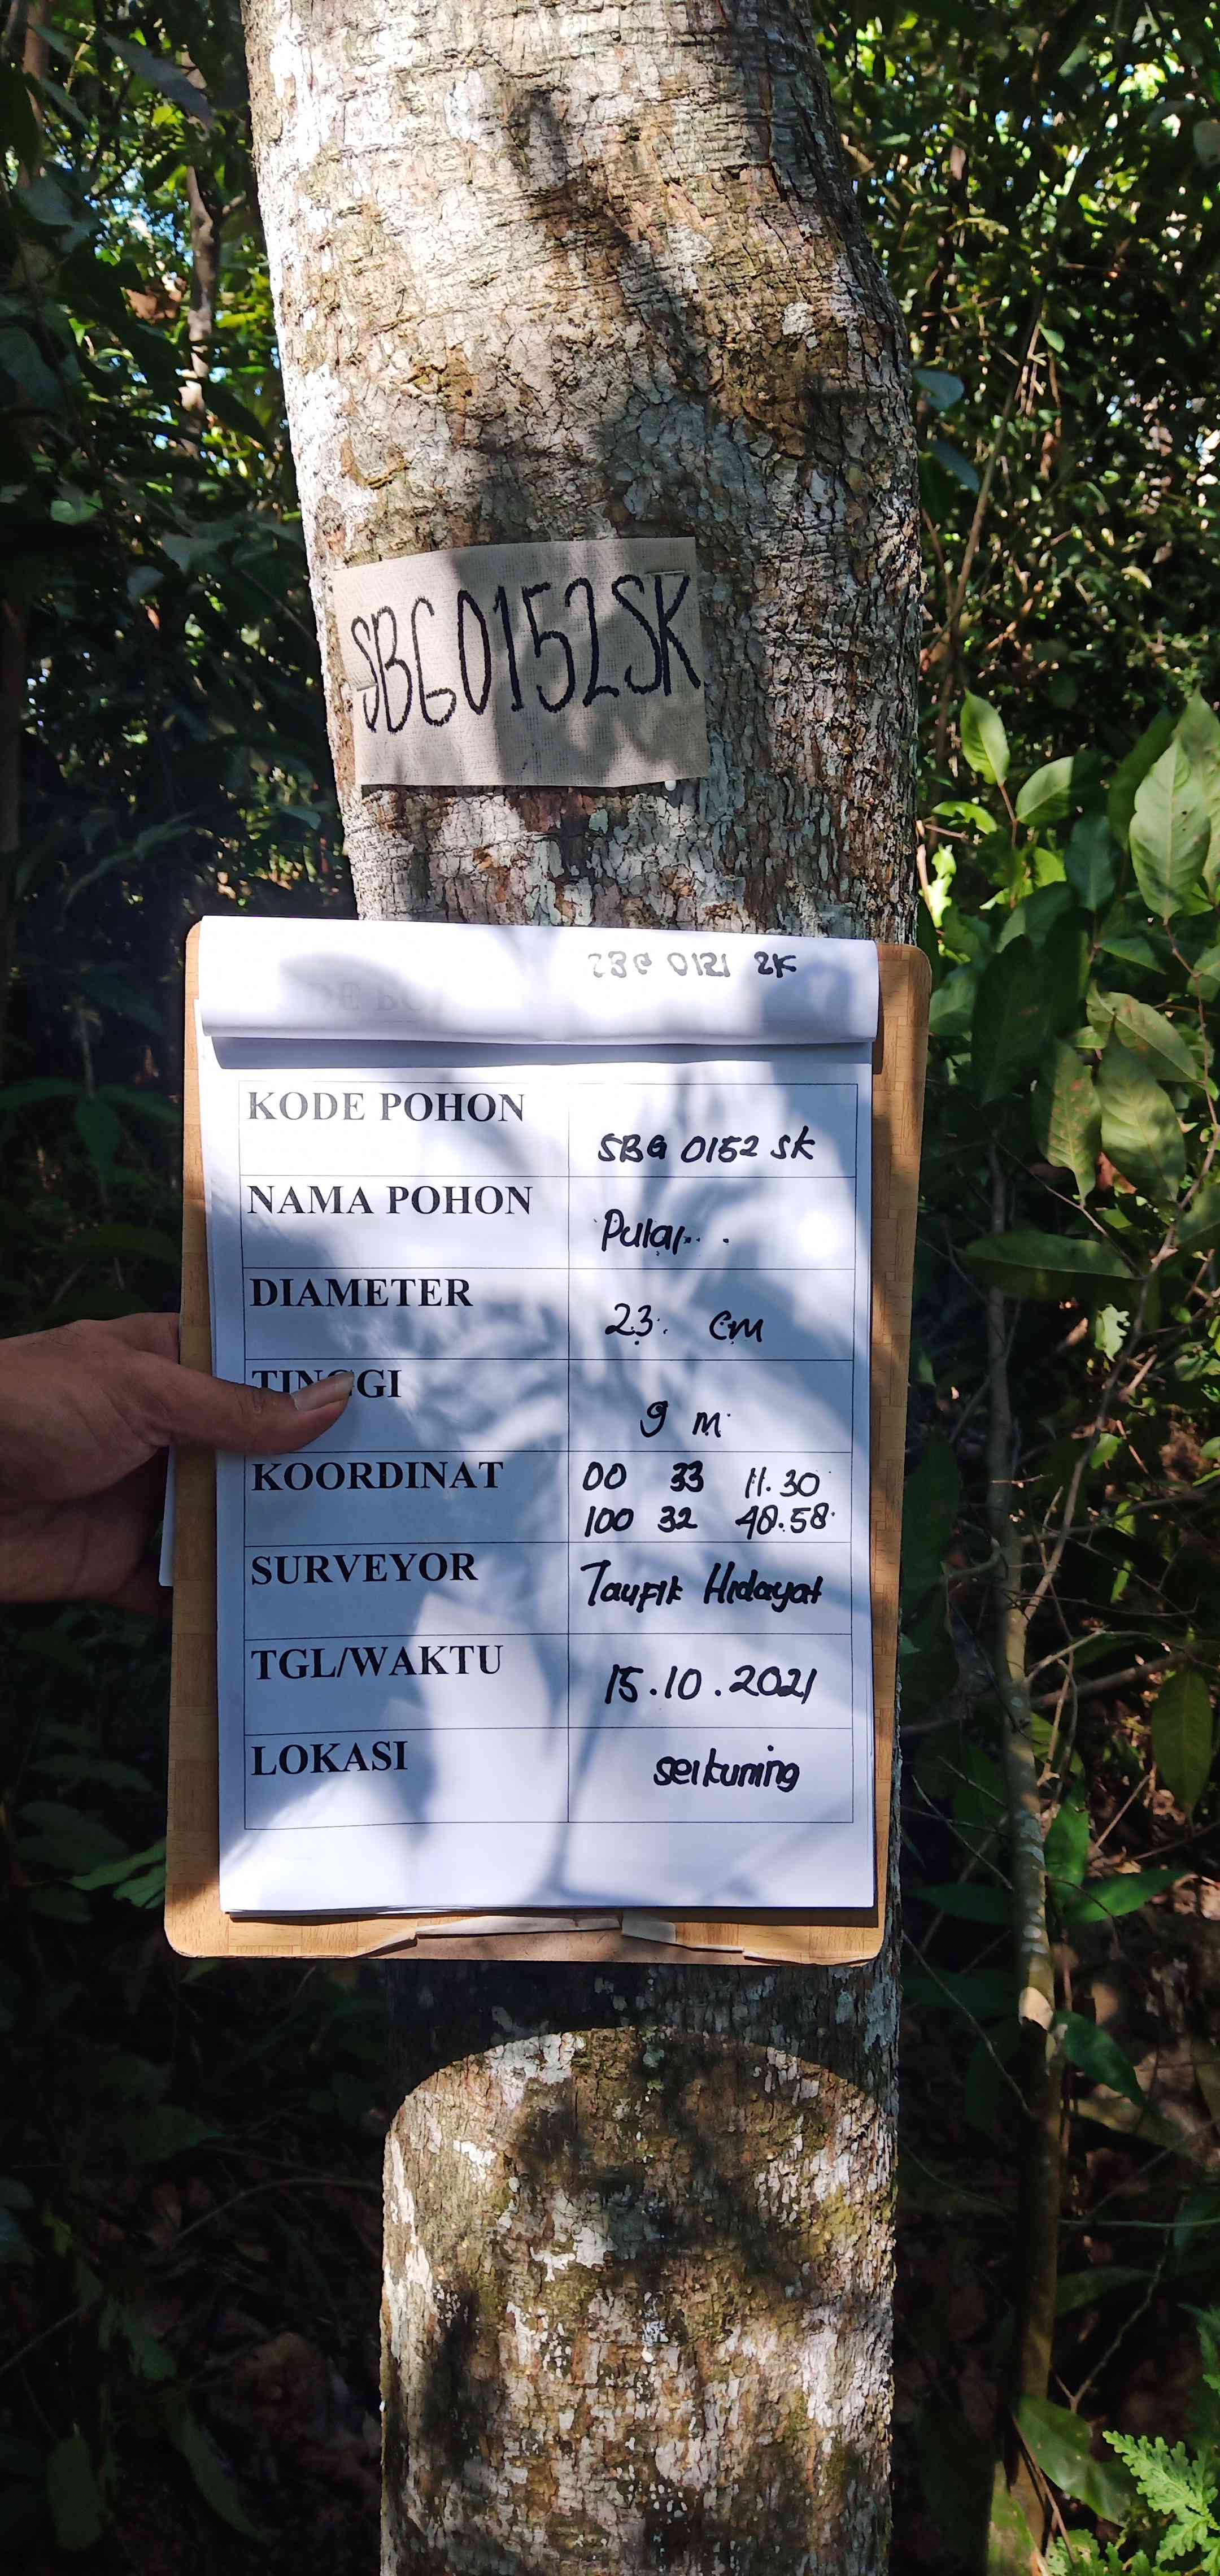 SBG0152SK
KODE POHON
SBG 0152 SK
NAMA POHON
Pulai
DIAMETER
23 cm
TINGGI
9 m
KOORDINAT
00 33 11.30
100 32 48.58
SURVEYOR
Taufik Hidayat
TGL/WAKTU
15.10.2021
LOKASI
seikuning